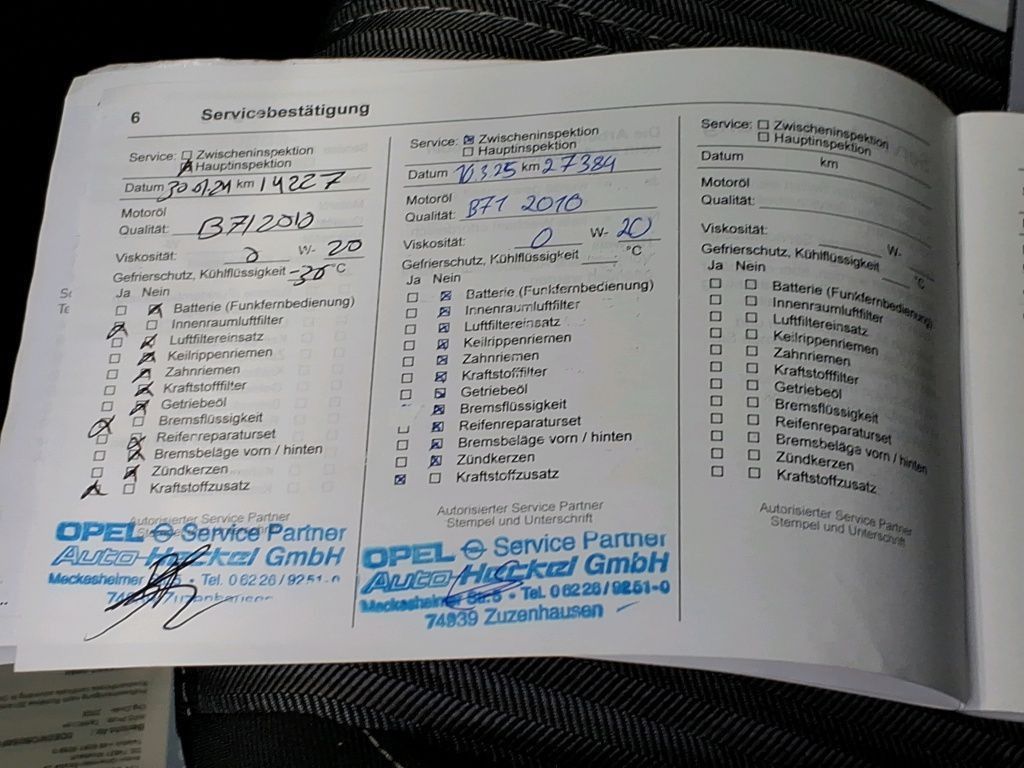 6 Servicebestätigung
Service: Zwischeninspektion
Hauptinspektion
Datum km 14227
Motoröl
Qualität: B71 2010
Viskosität: 0 W- 20
Gefrierschutz, Kühlflüssigkeit -30 °C
Ja Nein
Batterie (Funkfernbedienung)
Innenraumluftfilter
Luftfiltereinsatz
Keilrippenriemen
Zahnriemen
Kraftstofffilter
Getriebeöl
Bremsflüssigkeit
Reifenreparaturset
Bremsbeläge vorn / hinten
Zündkerzen
Kraftstoffzusatz
Autorisierter Service Partner
OPEL Service Partner
Auto-Hockel GmbH
Meckesheimer Str. 5 • Tel. 06226/9251-0
Zuzenhausen
Service: Zwischeninspektion
Hauptinspektion
Datum 10.3.25 km 27384
Motoröl
Qualität: B71 2010
Viskosität: 0 W- 20
Gefrierschutz, Kühlflüssigkeit °C
Ja Nein
Batterie (Funkfernbedienung)
Innenraumluftfilter
Luftfiltereinsatz
Keilrippenriemen
Zahnriemen
Kraftstofffilter
Getriebeöl
Bremsflüssigkeit
Reifenreparaturset
Bremsbeläge vorn / hinten
Zündkerzen
Kraftstoffzusatz
Autorisierter Service Partner
Stempel und Unterschrift
OPEL Service Partner
Auto-Hockel GmbH
Meckesheimer Str. 5 • Tel. 06226/9251-0
74939 Zuzenhausen
Service: Zwischeninspektion
Hauptinspektion
Datum km
Motoröl
Qualität:
Viskosität: W-
Gefrierschutz, Kühlflüssigkeit °C
Ja Nein
Batterie (Funkfernbedienung)
Innenraumluftfilter
Luftfiltereinsatz
Keilrippenriemen
Zahnriemen
Kraftstofffilter
Getriebeöl
Bremsflüssigkeit
Reifenreparaturset
Bremsbeläge vorn / hinten
Zündkerzen
Kraftstoffzusatz
Autorisierter Service Partner
Stempel und Unterschrift